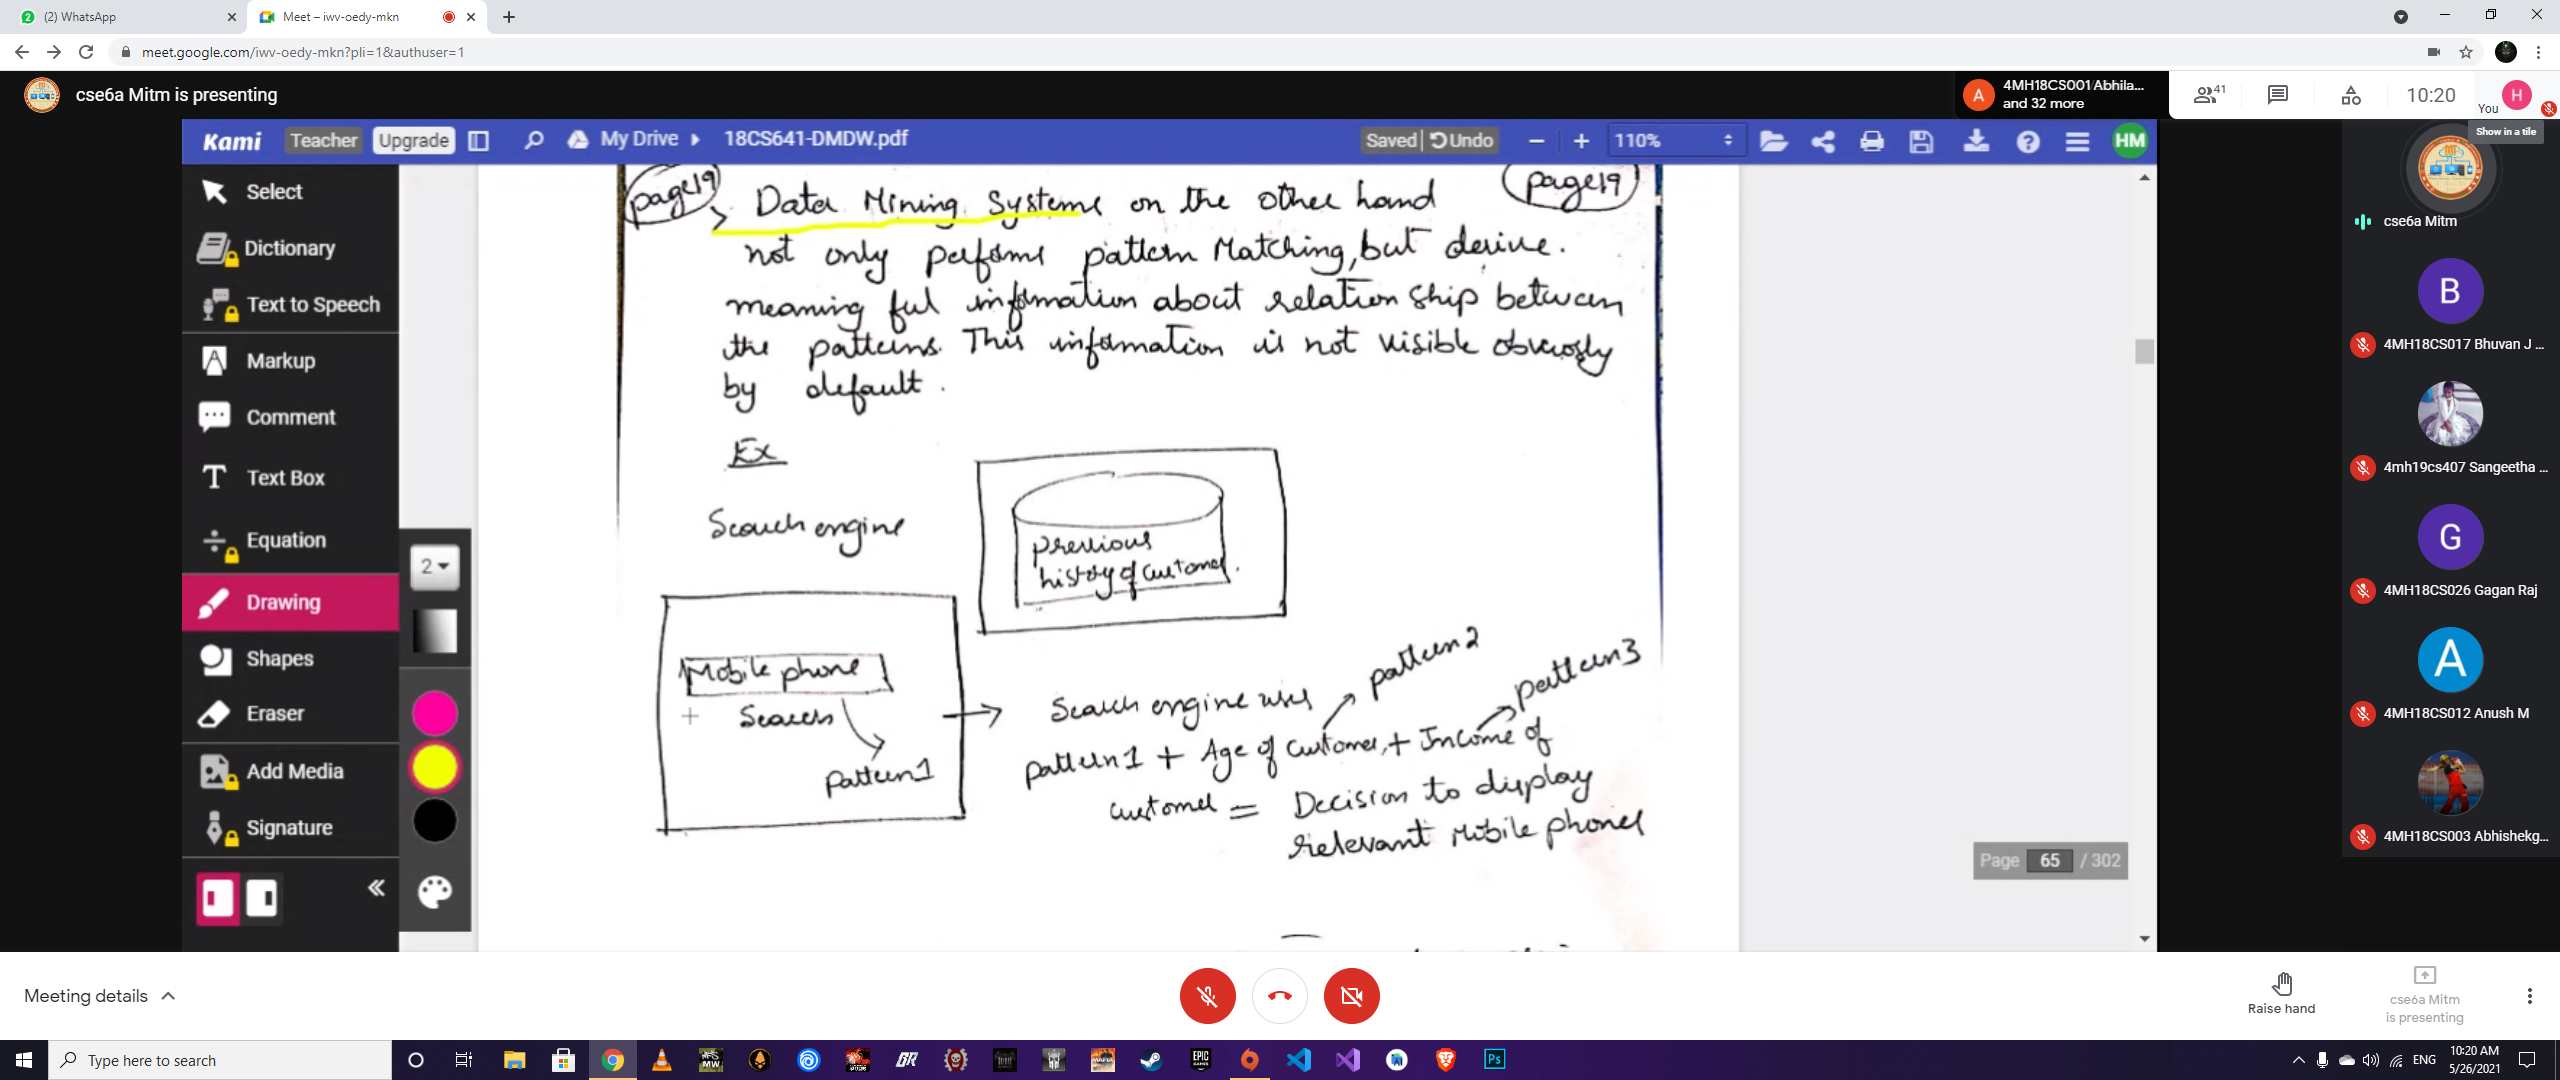 (2) WhatsApp
Meet – iwv-oedy-mkn
meet.google.com/iwv-oedy-mkn?pli=1&authuser=1
cse6a Mitm is presenting
A
4MH18CS001 Abhila...
and 32 more
41
10:20
You
H
Show in a tile
Kami
Teacher
Upgrade
My Drive
18CS641-DMDW.pdf
Saved
Undo
110%
HM
Select
Dictionary
Text to Speech
Markup
Comment
Text Box
Equation
Drawing
Shapes
Eraser
Add Media
Signature
2
page19
page19
> Data Mining Systems on the other hand
not only performs pattern Matching, but derive.
meaning ful information about relation ship between
the patterns. This information is not visible obviously
by default.
Ex
Search engine
previous
history of customer.
Mobile phone
Search
pattern1
pattern2
pattern3
Search engine uses
pattern1 + Age of customer, + Income of
customer = Decision to display
relevant Mobile phones
Page 65 / 302
cse6a Mitm
B
4MH18CS017 Bhuvan J ...
4mh19cs407 Sangeetha ...
G
4MH18CS026 Gagan Raj
A
4MH18CS012 Anush M
4MH18CS003 Abhishekg...
Meeting details
Raise hand
cse6a Mitm
is presenting
Type here to search
ENG
10:20 AM
5/26/2021